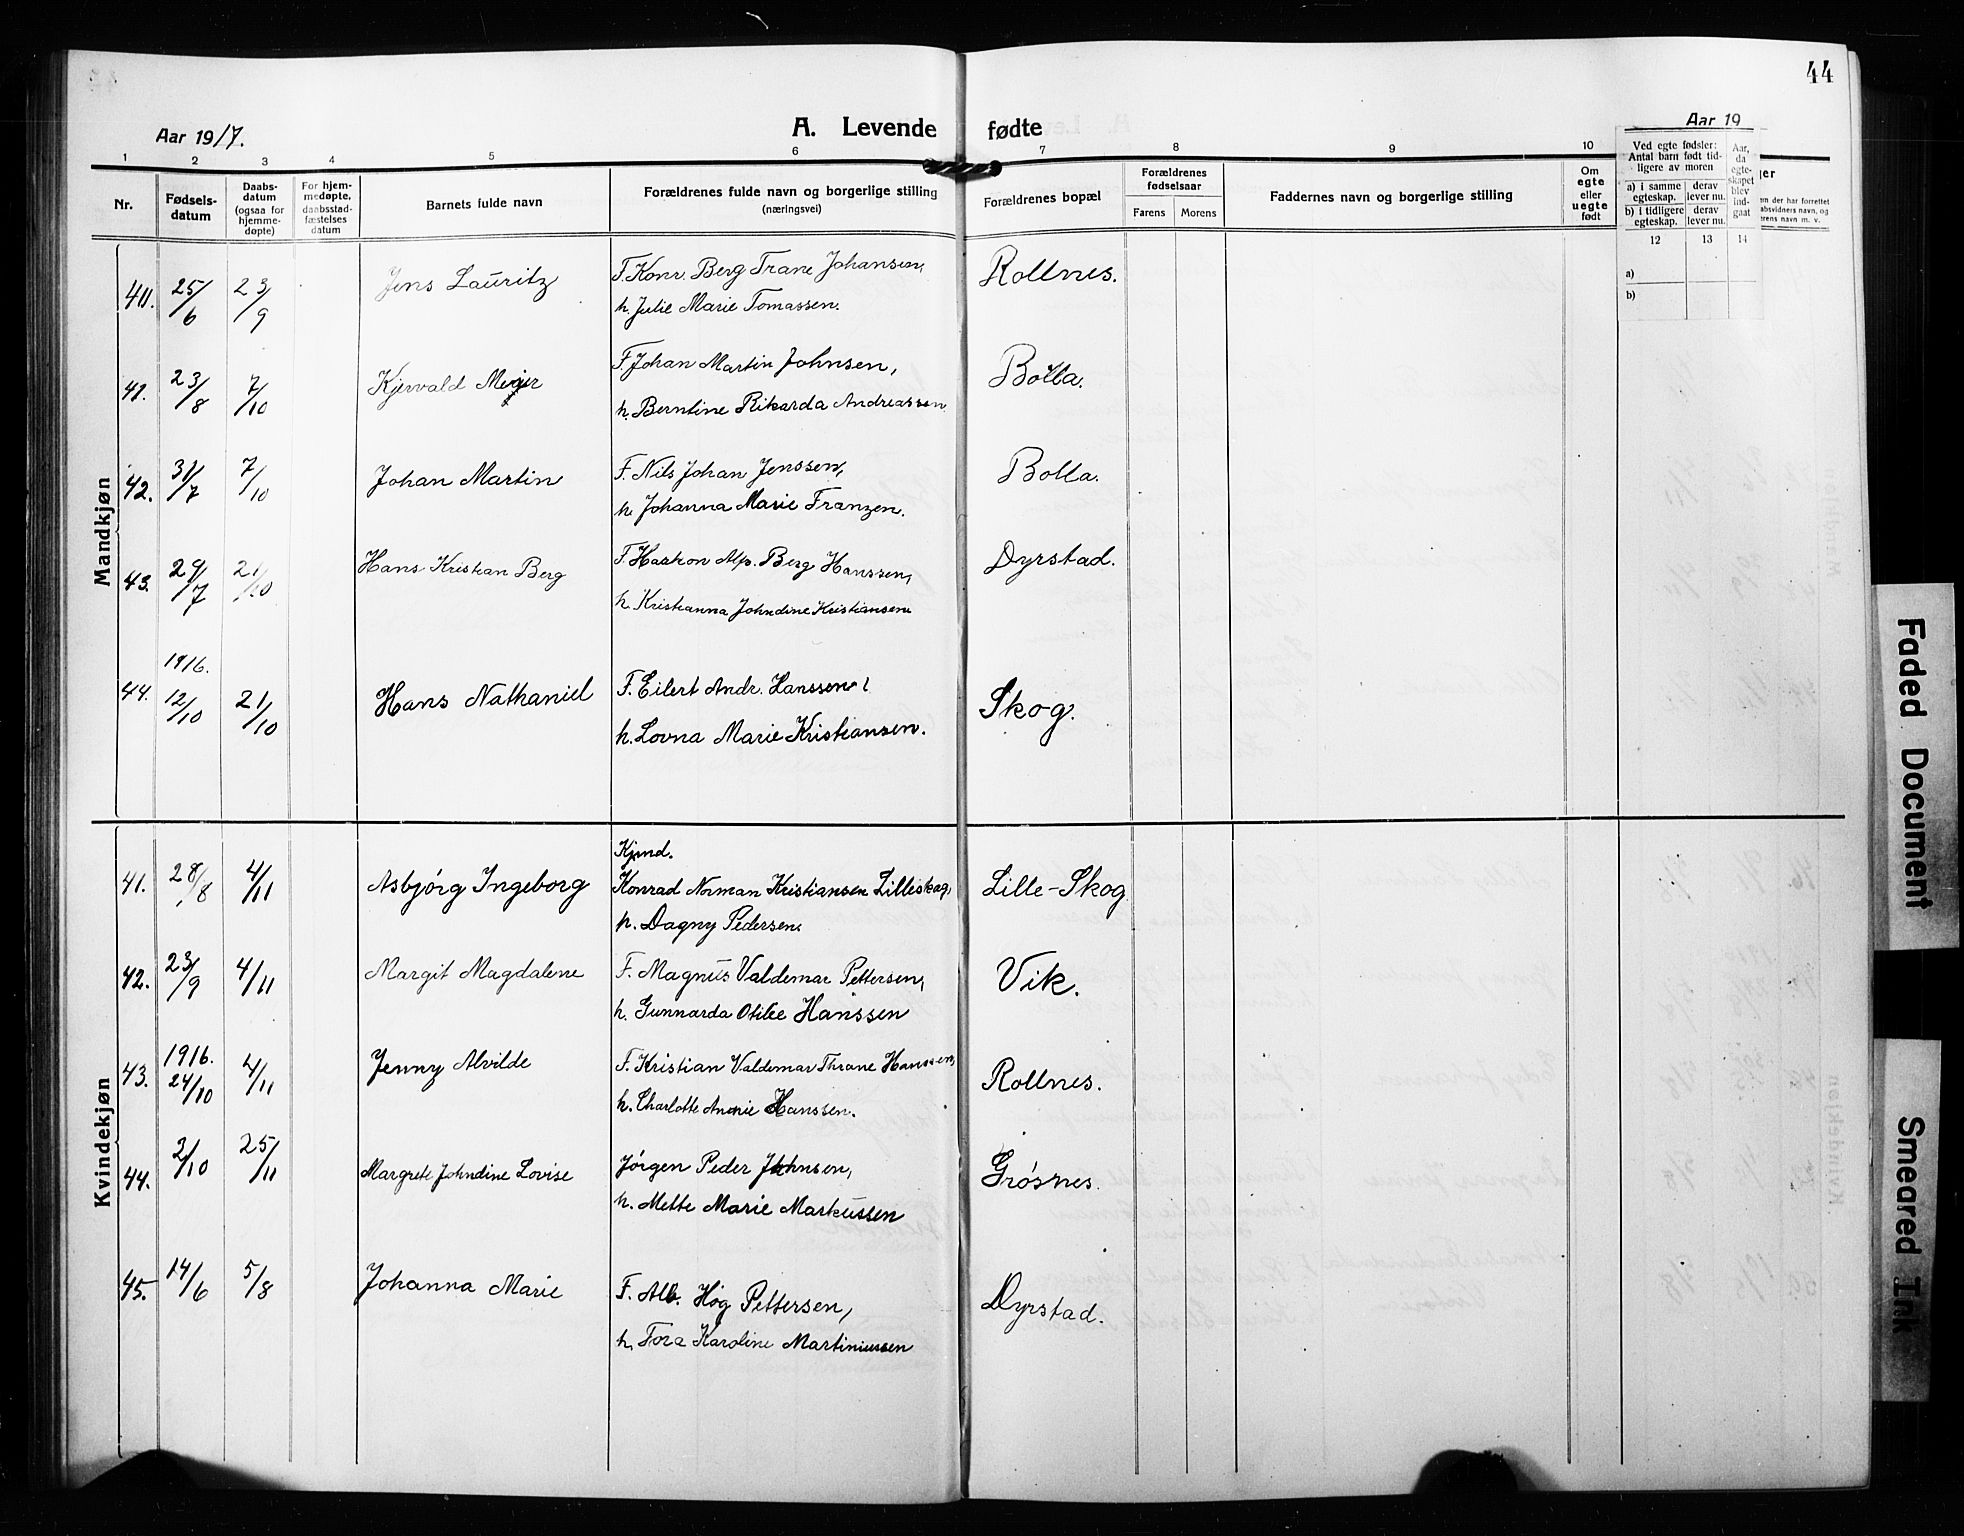 44
Aar 1917.
A. Levende fødte
Aar 19
1 2 3 4 5 6 7 8 9 10
Nr.
Fødsels-
datum
Daabs-
datum
(ogsaa for
hjemme-
døpte)
For hjem-
medøpte,
daabsstad-
fæstelses
datum
Barnets fulde navn
Forældrenes fulde navn og borgerlige stilling
(næringsvei)
Forældrenes bopæl
Forældrenes
fødselsaar
Farens Morens
Faddernes navn og borgerlige stilling
Om
egte
eller
uegte
født
Ved egte fødsler:
Antal barn født tid-
ligere av moren
a) i samme
egteskap.
derav
lever nu.
b) i tidligere
egteskap.
derav
lever nu.
Aar,
da
egte-
skapet
blev
ind-
gaat
12 13 14
a)
b)
ger
m der har forrettet
absvidners navn, og
erens navn m. v.
Mandkjøn
40. 25/6 23/9 Jens Lauritz F. Konr. Berg Trane Johansen, Rollnes.
h. Julie Marie Tomassen.
41. 23/8 7/10 Kjervald Meyer F. Johan Martin Johnsen, Bolla.
h. Berntine Rikarda Andreassen
42. 31/7 7/10 Johan Martin F. Nils Johan Jenssen, Bolla.
h. Johanna Marie Franzen.
43. 29/7 21/10 Hans Kristian Berg F. Haakon Alf. Berg Hanssen, Dyrstad.
h. Kristianna Johndine Kristiansen
1916.
44. 12/10 21/10 Hans Nathaniel F. Eilert Andr. Hanssen, Skog.
h. Lovna Marie Kristiansen.
Kvindekjøn
Kjmd.
41. 28/8 4/11 Asbjórg Ingeborg Konrad Norman Kristiansen Lilleskog, Lille-Skog
h. Dagny Pedersen.
42. 23/9 4/11 Margit Magdalene F. Magnus Valdemar Pettersen, Vik.
h. Gunnarda Otilie Hanssen
1916.
43. 24/10 4/11 Jenny Alvilde F. Kristian Valdemar Thrane Hanssen, Rollnes.
h. Charlotte Annie Hanssen.
44. 2/10 25/11 Margrete Johndine Lovise Jórgen Peder Johnsen, Grósnes.
h. Mette Marie Markussen
45. 14/6 5/8 Johanna Marie F. Alb. Hóg Pettersen, Dyrstad.
h. Tora Karoline Martiniussen
Faded Document
Smeared Ink